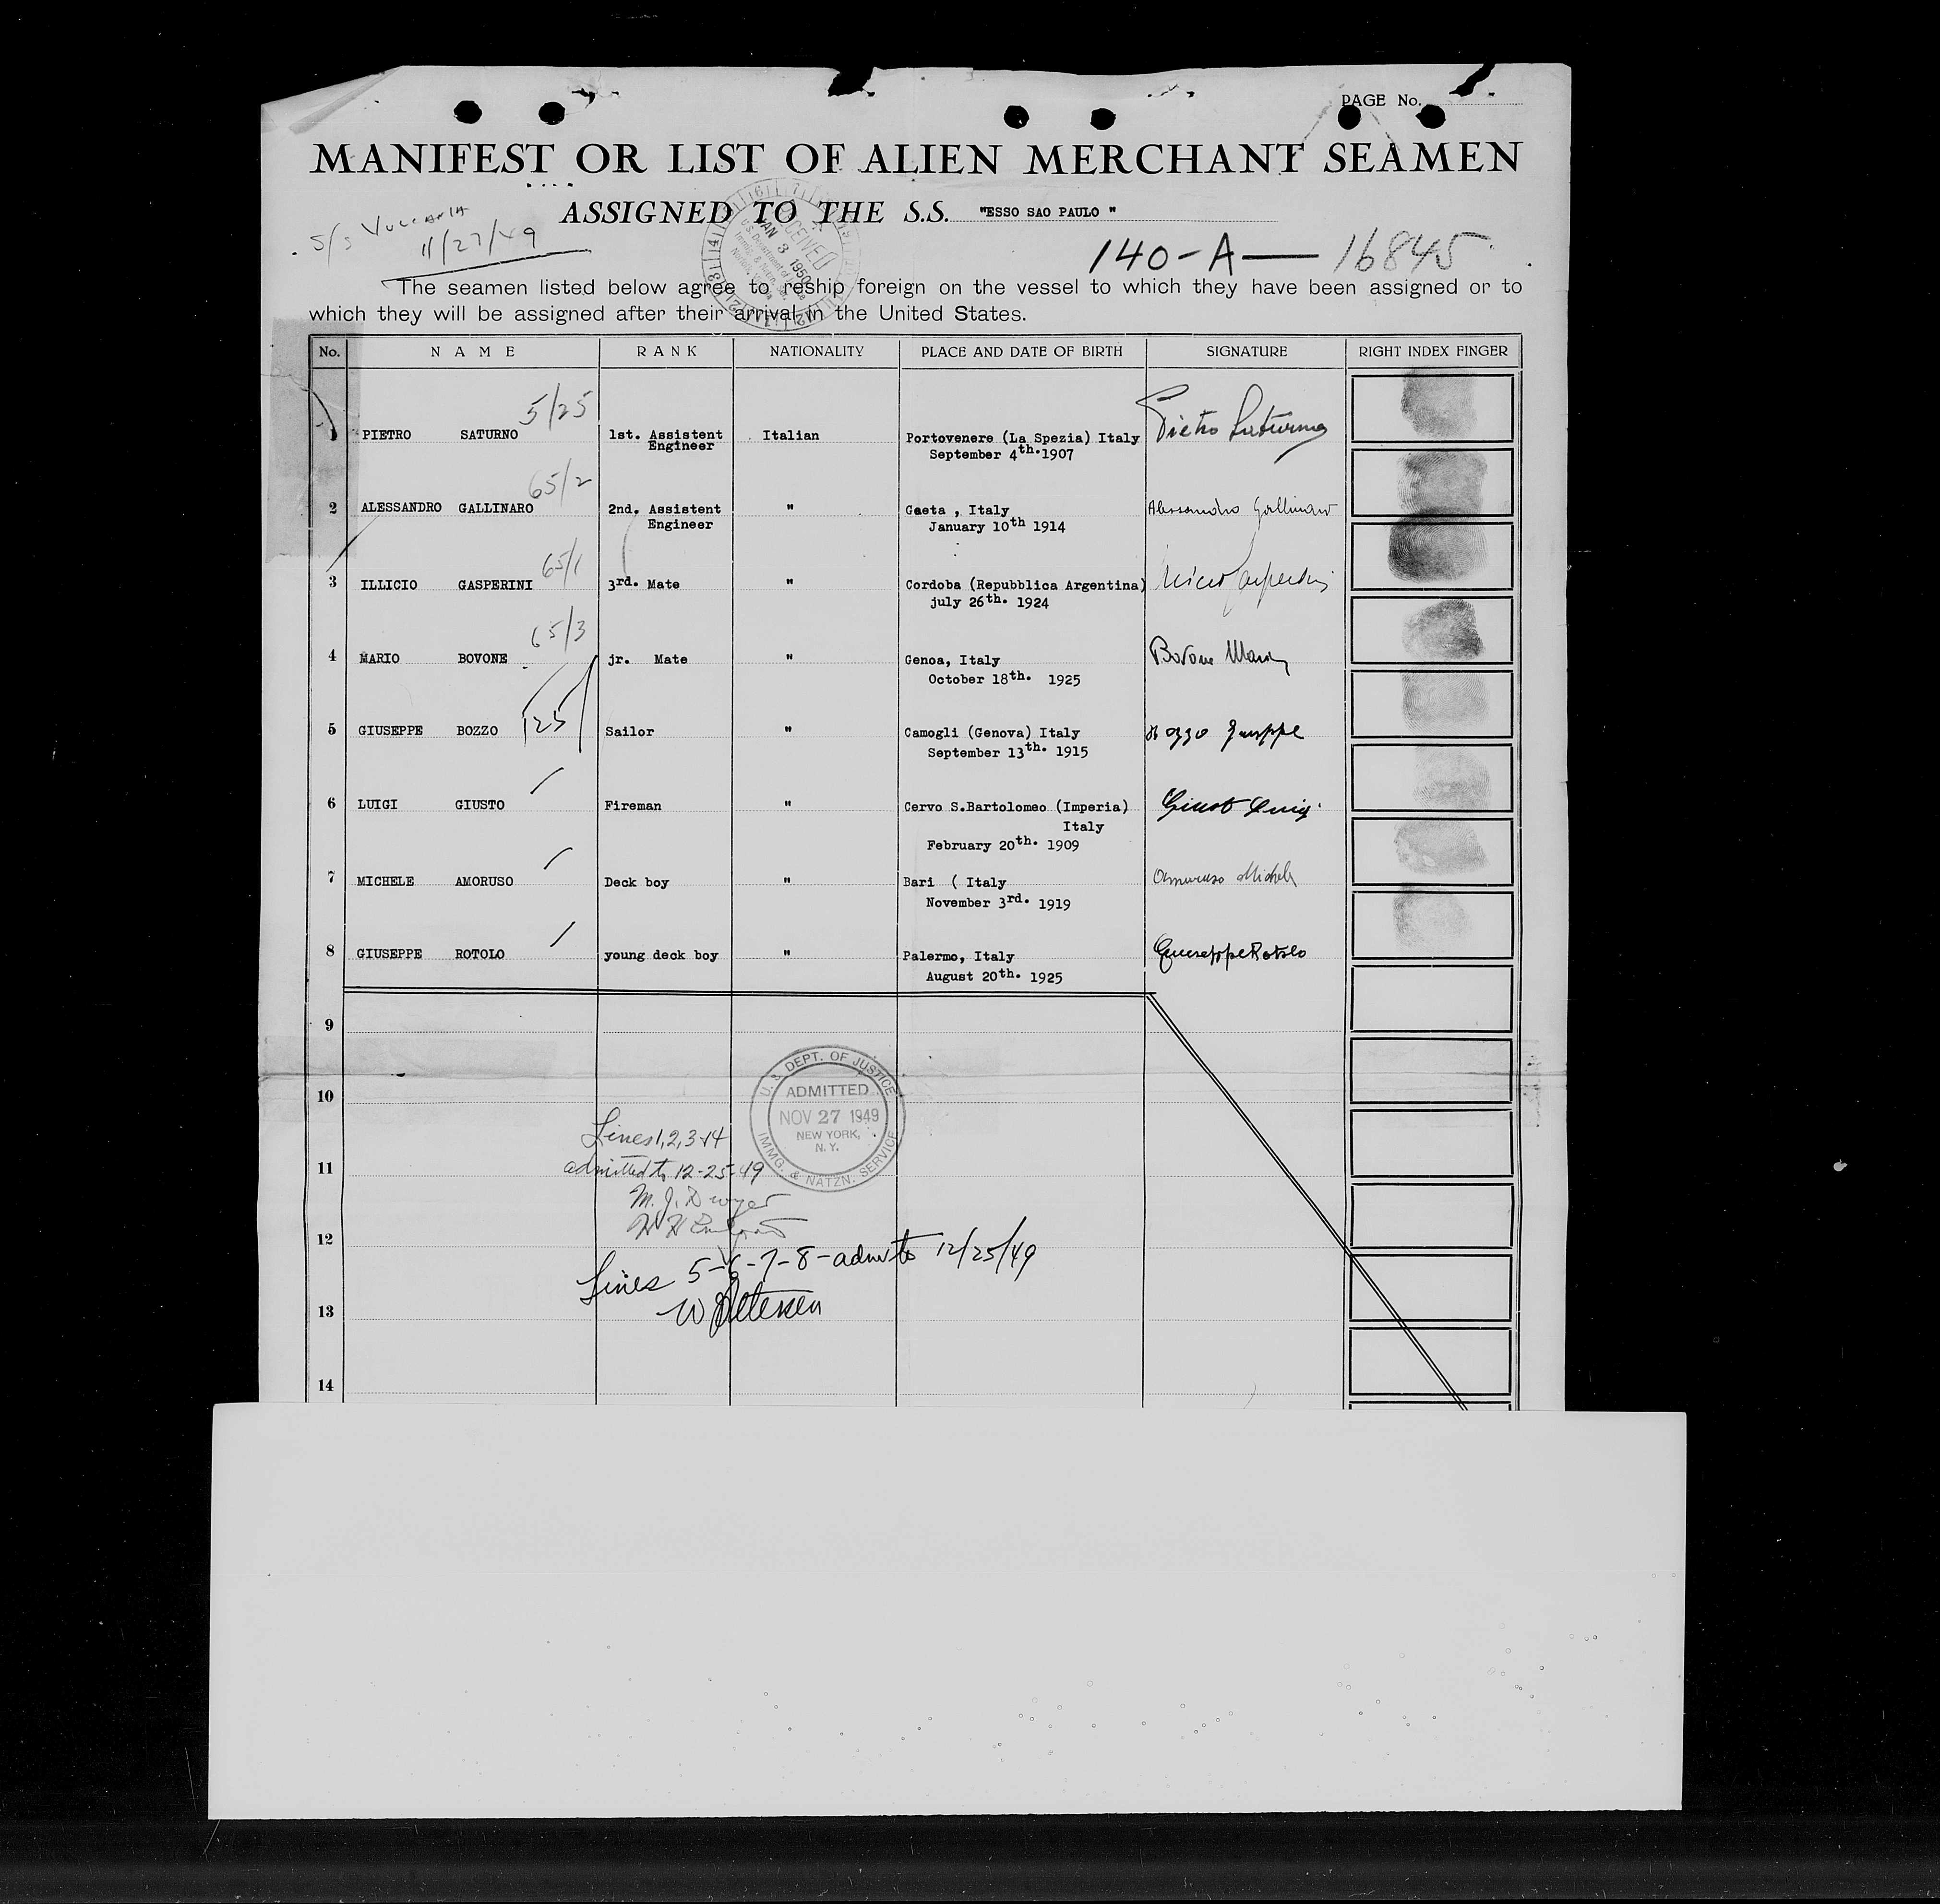 PAGE No.
MANIFEST OR LIST OF ALIEN MERCHANT SEAMEN
ASSIGNED TO THE S.S. "ESSO SAO PAULO "
S/S VULCANIA
11/27/49
RECEIVED
JAN 3 1950
140-A — 16845
The seamen listed below agree to reship foreign on the vessel to which they have been assigned or to
which they will be assigned after their arrival in the United States.
No. NAME RANK NATIONALITY PLACE AND DATE OF BIRTH SIGNATURE RIGHT INDEX FINGER
5/25
1 PIETRO SATURNO 1st. Assistent Italian Portovenere (La Spezia) Italy Pietro Saturno
Engineer September 4th. 1907
65/2
2 ALESSANDRO GALLINARO 2nd. Assistent " Gaeta , Italy Alessandro Gallinaro
Engineer January 10th 1914
65/1
3 ILLICIO GASPERINI 3rd. Mate " Cordoba (Repubblica Argentina)
july 26th. 1924
65/3
4 MARIO BOVONE jr. Mate " Genoa, Italy Bovone Mario
October 18th. 1925
125
5 GIUSEPPE BOZZO Sailor " Camogli (Genova) Italy Bozzo Giuseppe
September 13th. 1915
6 LUIGI GIUSTO Fireman " Cervo S.Bartolomeo (Imperia) Giusto Luigi
Italy
February 20th. 1909
7 MICHELE AMORUSO Deck boy " Bari ( Italy Amoruso Michele
November 3rd. 1919
8 GIUSEPPE ROTOLO young deck boy " Palermo, Italy Giuseppe Rotolo
August 20th. 1925
9
10
U. S. DEPT. OF JUSTICE
ADMITTED
NOV 27 1949
NEW YORK,
N.Y.
IMMG. & NATZN. SERVICE
Lines 1,2,3+4
11
admitted to 12-25-49
M. J. Dwyer
12
Lines 5-6-7-8-adm to 12/25/49
13
W Petersen
14